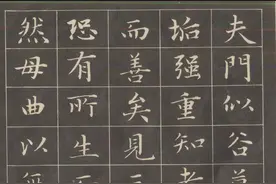 夫門似谷
垢强重知
而善矣見
恐有所生
然母曲以